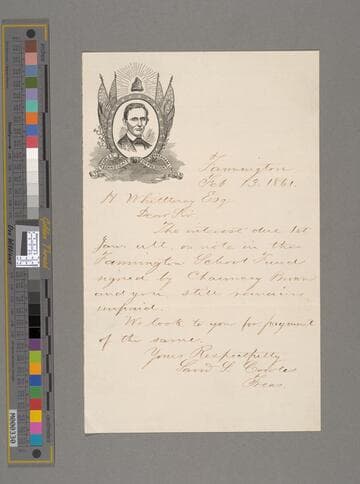 Farmington
Feb 13. 1861.
H Whittlesey Esq
Dear Sir
The interest due 1st
Jan. ult. on note in the
Farmington School Fund
signed by Chauncey Brown
and you still remains
unpaid.
We look to you for payment
of the same.
Yours Respectfully
Saml S. Cowles
Treas.
Golden Thread
M0000330